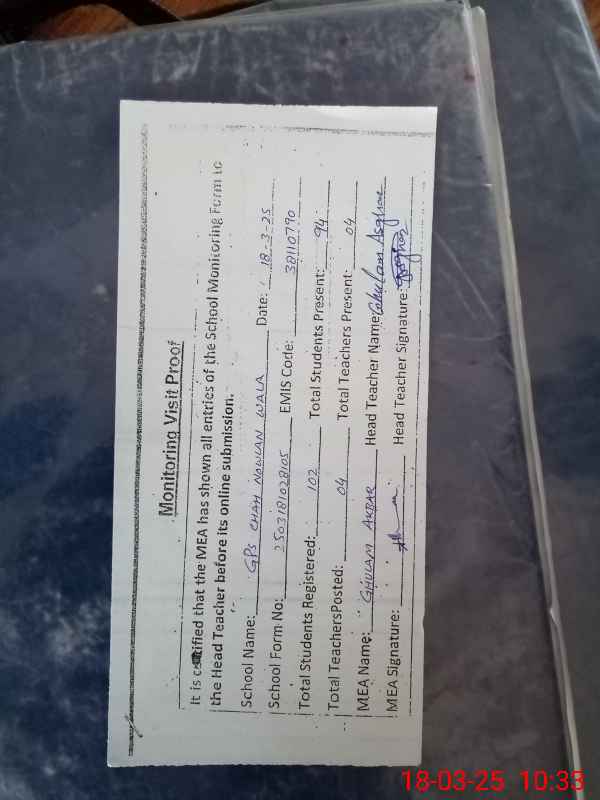 Monitoring Visit Proof
It is certified that the MEA has shown all entries of the School Monitoring Form to
the Head Teacher before its online submission.
School Name: GPS CHAH NOWLAN WALA Date: 18-3-25
School Form No: 2503181028105 EMIS Code: 38110790
Total Students Registered: 102 Total Students Present: 94
Total TeachersPosted: 04 Total Teachers Present: 04
MEA Name: GHULAM AKBAR Head Teacher Name: Ghulam Asghar
MEA Signature: Head Teacher Signature:
18-03-25 10:33